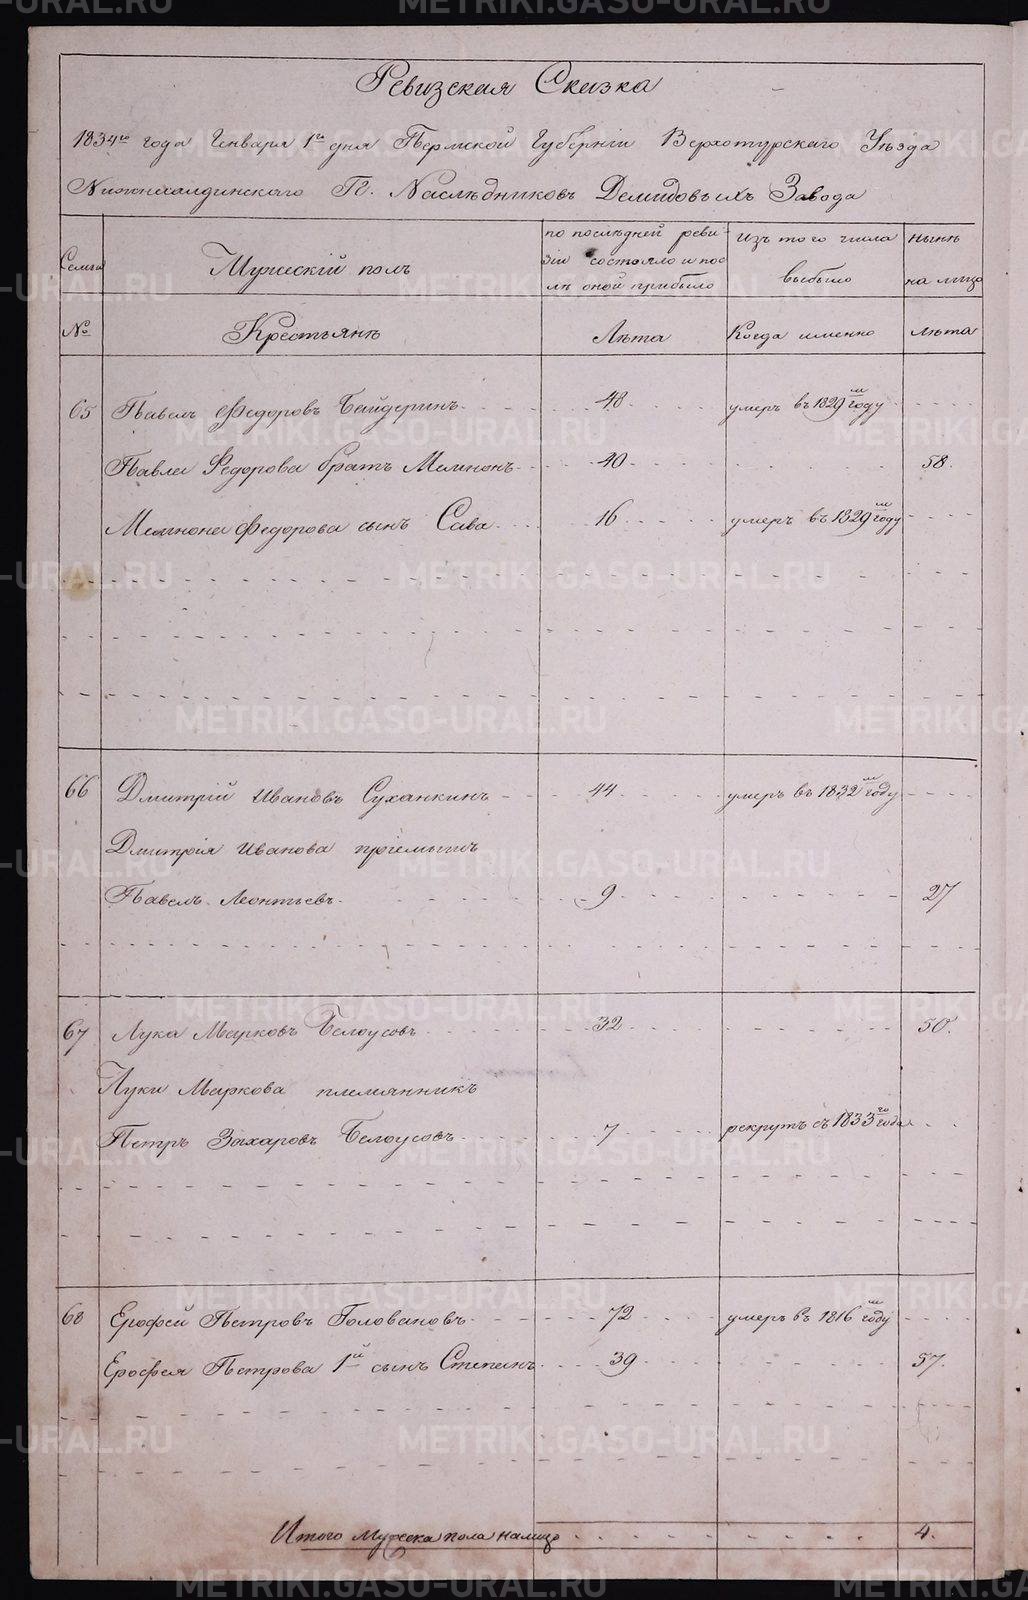 Ревизская Сказка
1834го года Генваря 1го дня Пермской Губернiи Верхотурскаго Уѣзда
Нижносалдинскаго ГГ. Наслѣдниковъ Демидовыхъ Завода
Семьи
Мужескiй полъ
по послѣдней реви-
зiи состояло и пос
лѣ оной прибыло
Изъ того числа
выбыло
Нынѣ
на лицо
№
Крестьянѣ
Лѣта
Когда именно
Лѣта
65 Павелъ Федоровъ Байдеринъ 48 умеръ въ 1829м году
Павла Федорова братъ Мемнонъ 40 58.
Мемнона Федорова сынъ Сава 16 умеръ въ 1829м году
66 Дмитрiй Ивановъ Суханкинъ 44 умеръ въ 1832м году
Дмитрiя Иванова прiемышъ
Павелъ Леонтьевъ 9 27
67 Лука Марковъ Белоусовъ 32 50.
Луки Маркова племянникъ
Петръ Захаровъ Белоусовъ 7 рекрутъ съ 1833го года
68 Ерофей Петровъ Головановъ 72 умеръ въ 1816м году
Ерофея Петрова 1й сынъ Степанъ 39 57.
Итого Мужеска пола налицо 4.
METRIKI.GASO-URAL.RU